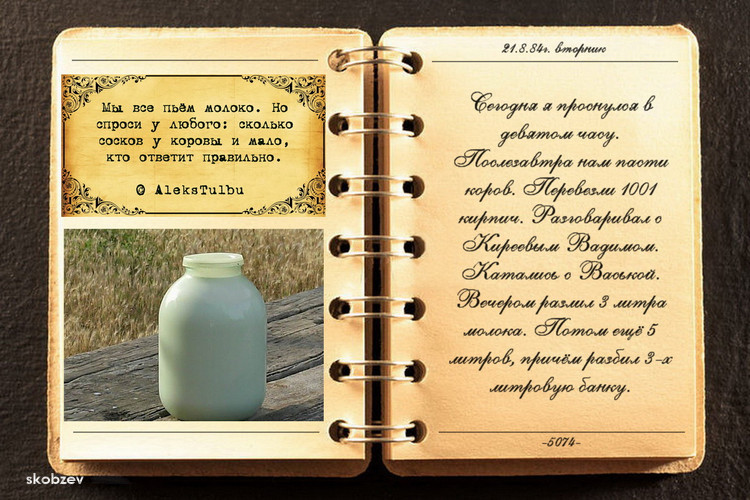 Мы все пьём молоко. Но
спроси у любого: сколько
сосков у коровы и мало,
кто ответит правильно.
© AleksTulbu
21.8.84г. вторник
Сегодня я проснулся в
девятом часу.
Послезавтра нам пасти
коров. Перевезли 1001
кирпич. Разговаривал с
Киреевым Вадимом.
Катались с Васькой.
Вечером разлил 3 литра
молока. Потом ещё 5
литров, причём разбил 3-х
литровую банку.
-5074-
skobzev